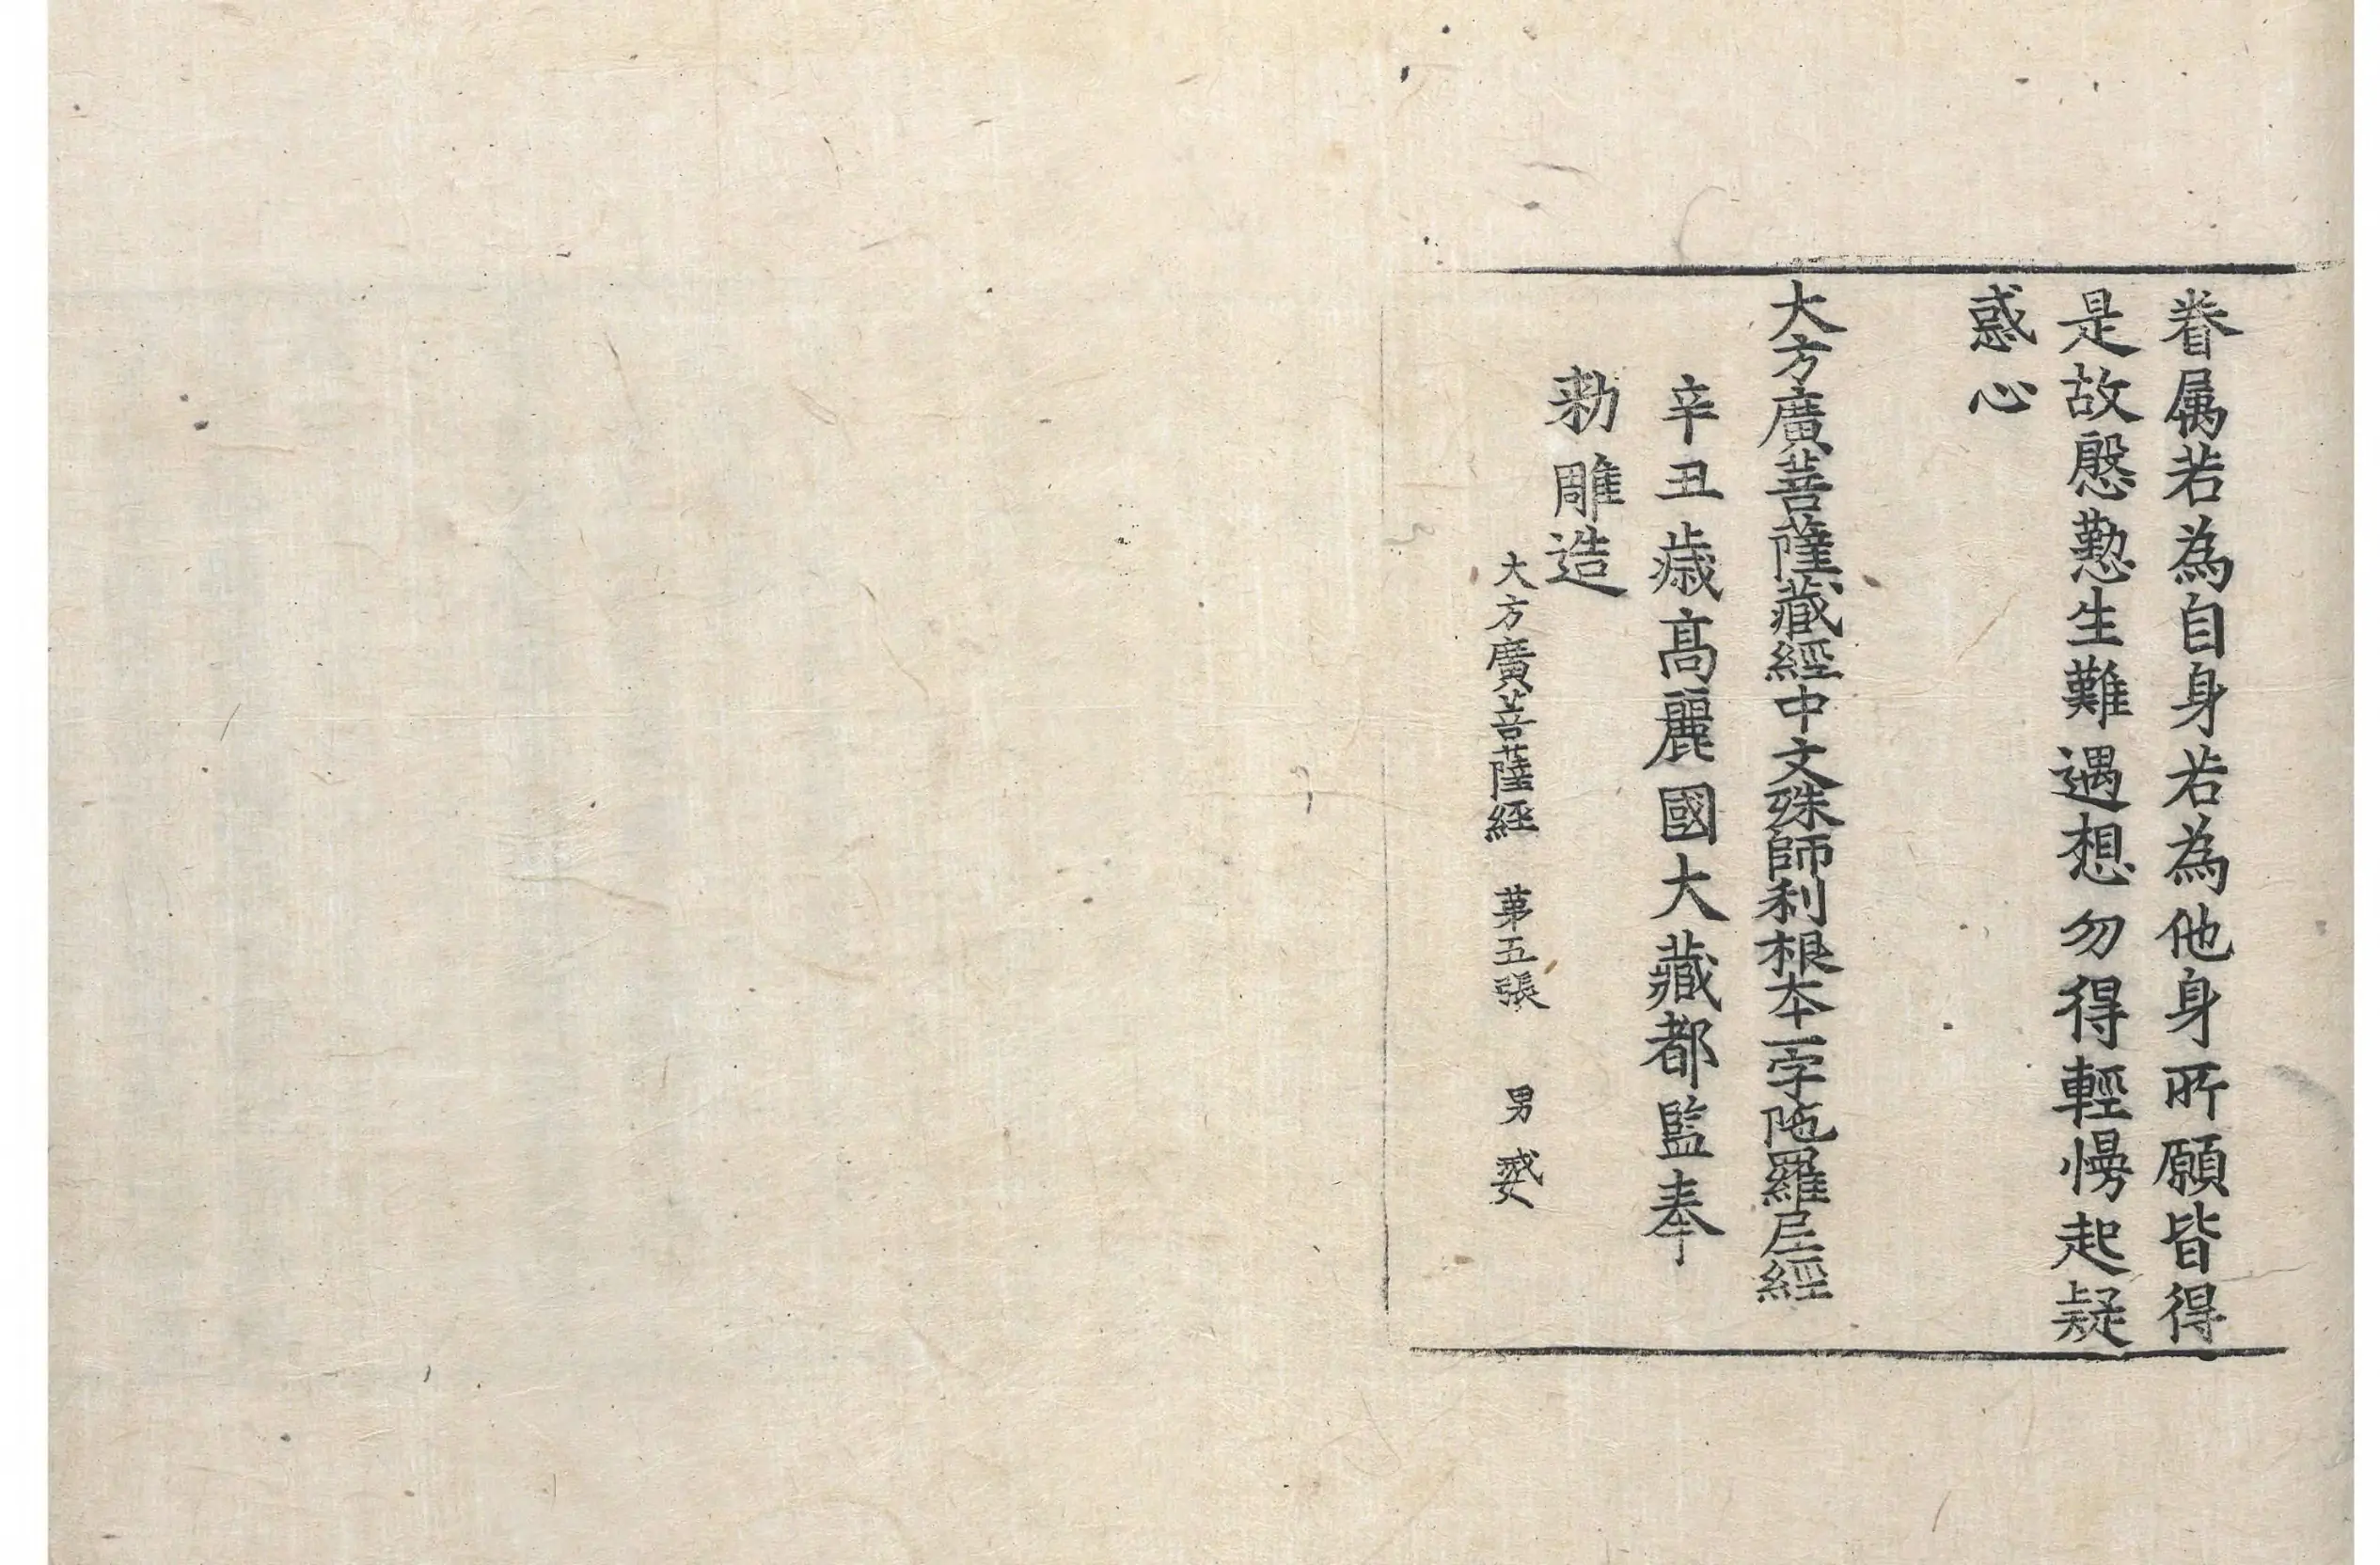 眷属若為自身若為他身所願皆得
是故慇懃生難遇想勿得輕慢起疑
惑心
大方廣菩薩藏經中文殊師利根本一字陁羅尼經
辛丑歲高麗國大藏都監奉
勑雕造
大方廣菩薩經 苐五張 男